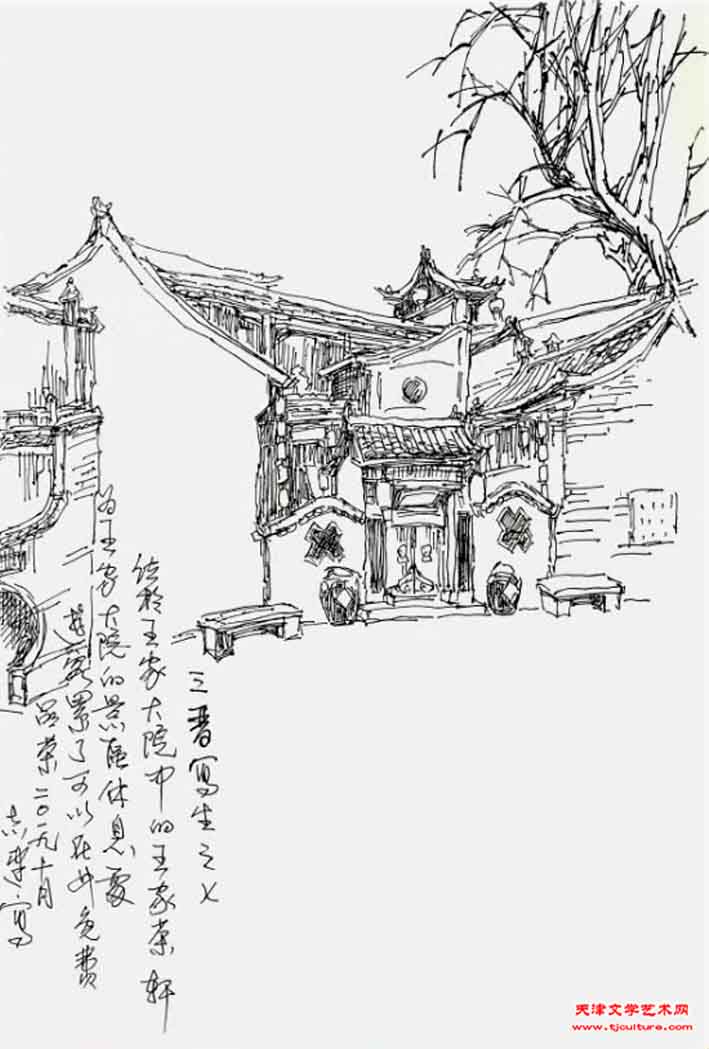 三晋写生之七
位于王家大院中的王家茶轩
为王家大院的景区休息处
游客累了可以在此免费
品茶二〇一九十月
写
天津文学艺术网
www.tjculture.com